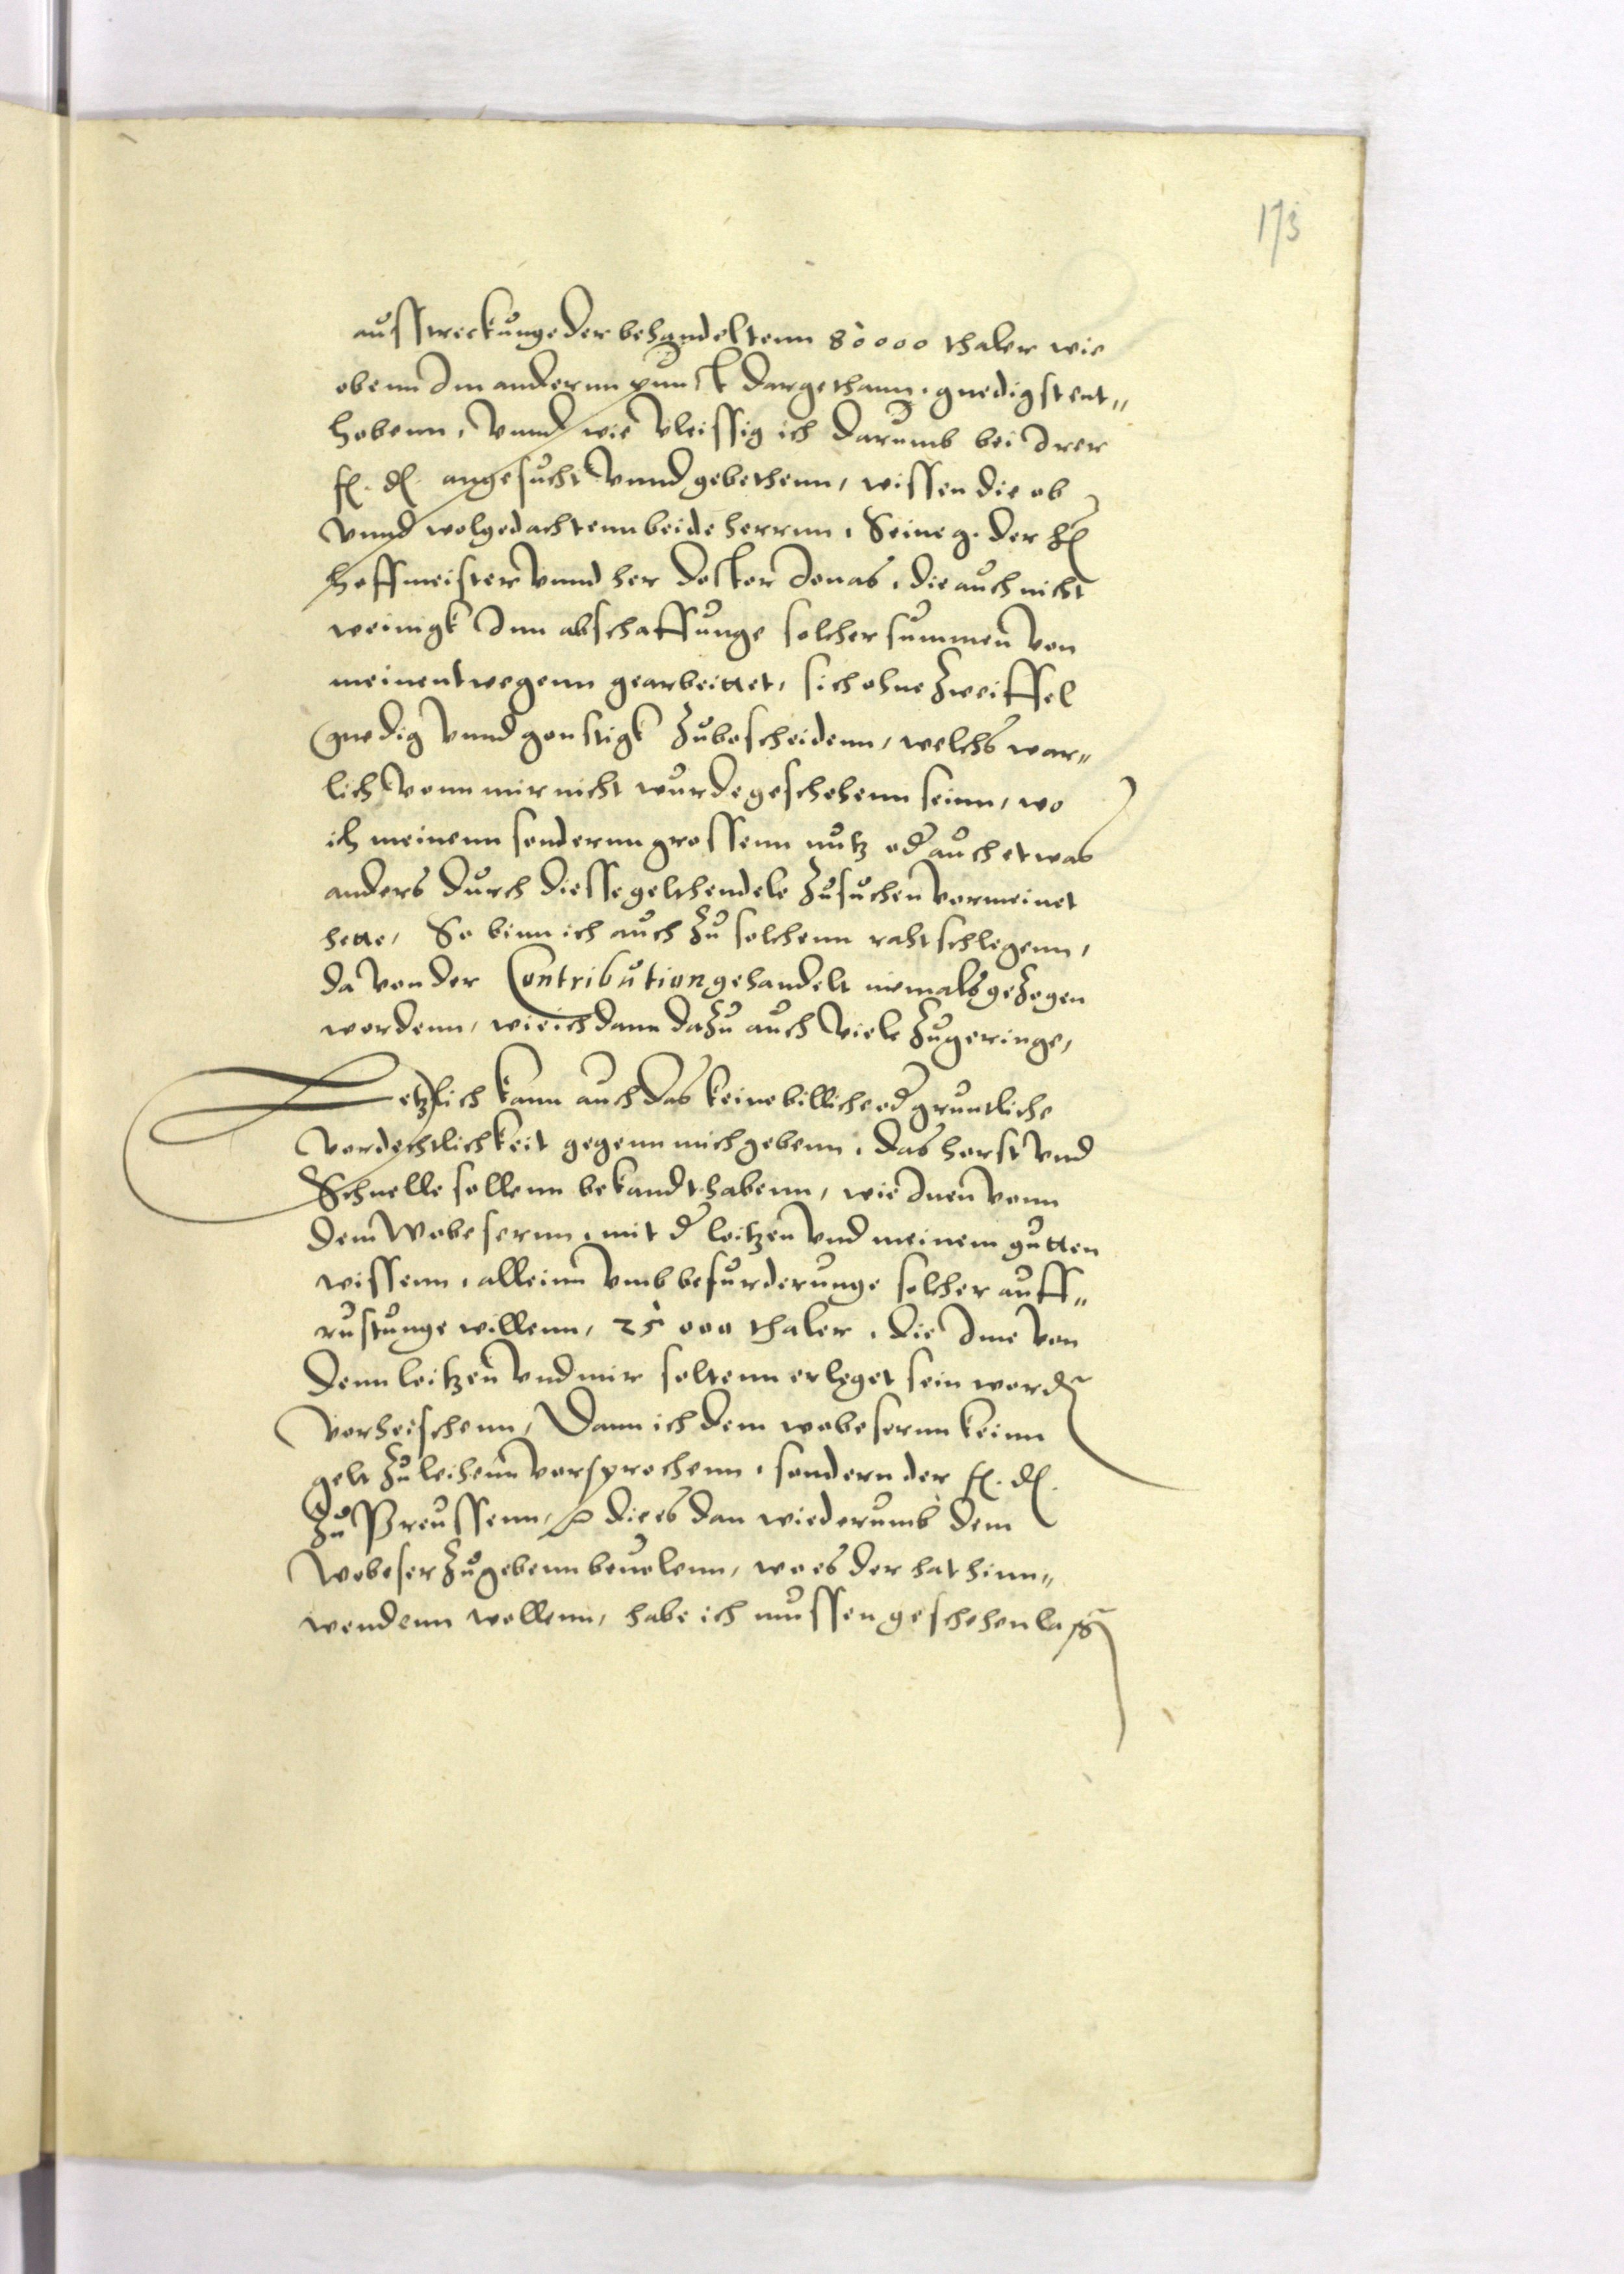 173
ausstreckunge der behandeltenn 80000 thaler wie
obenn Im andernn punckt dargethann, gnedigst ent„
hobenn, vnnd wie vleissig ich darumb bei Irer
f. d. angesucht vnnd gebethenn, wissen die ob
vnnd wolgedachtenn beide herrnn, Seine g. der h
hoffmeister vnnd her doktor Jonas, die auch nicht
weinigk Inn abschaffunge solcher summen von
meinentwegenn gearbeittet, sich ohne Zweiffel
gnedig vnnd gonstigk Zubescheidenn, welchs war„
lich vonn mir nicht wurde geschehenn seinn, wo
ich meinenn sondernn grossenn nutz od auch etwas
anders durch diesse gelthendele Zusuchen vormeinet
hette, So binn ich auch Zu solchenn rahtschlegenn,
da von der Contribution gehandelt niemals geZogen
wordenn, wie ich dann daZu auch viele Zugeringe,
Letzlich kann auch das keine billiche od gruntliche
vordechtlichkeit gegenn mich gebenn, das horst vnd
Schnelle sollenn bekandt habenn, wie Inen vonn
dem Wobesernn, mit d loitzen vnd meinem gutten
wissenn, alleinn vmb befurderunge solcher auff„
rustunge willenn, 25000 thaler, die Ime von
denn loitzen vnd mir soltenn erleget sein word
vorheischenn, Dann ich dem wobesernn keinn
gelt Zu leihenn vorsprochenn, sondern der f. d.
Zu Preussenn, die es dan wiederumb dem
Wobeser Zugebenn beuolenn, wo es der hat hinn„
wendenn wollenn, habe ich mussen geschehen lass